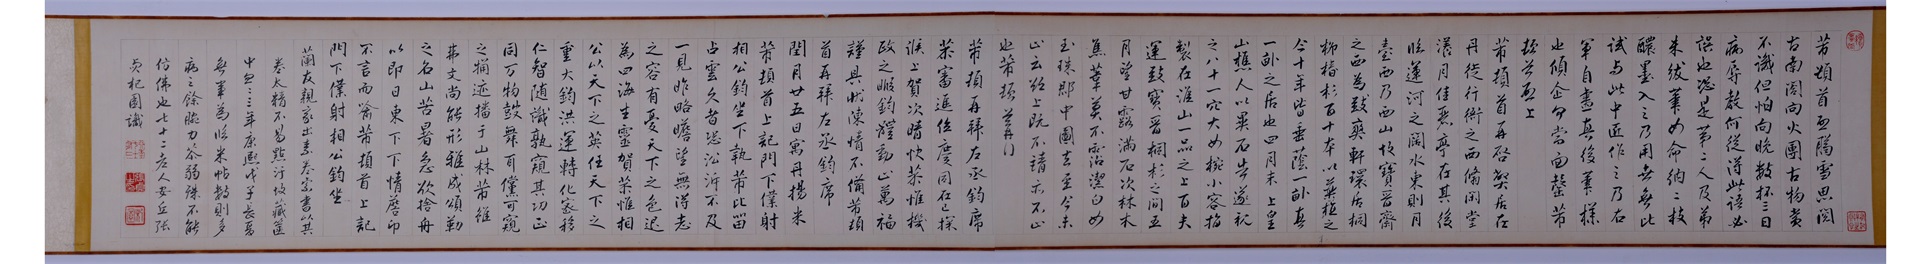 芾頓首
古南閣向火團古物賞
不識但怕向晚數杯三日
病辱教何從得皆語必
誤也恐是第二人及第
朱紱筆如命納二枝
醲墨入之乃用無此
試与此中匠作之乃右
軍自畫真後筆樣
也傾企何當面馨芾
頓首再上
芾頓首再啓弊居在
丹徒行衙之西翛閑堂
漾月佳麗亭在其後
臨運河之闊水東則月
臺西乃西山故寶晉齋
之西為致爽軒環居桐
柳椿杉百十本以藥植之
今十年皆垂蔭一卧真
一卧之居也四月末上皇
山樵人以異石告遂視
之八十一穴大如椀小容指
製在淮山一品之上百夫
運致寶晉桐杉之間五
月望甘露滿石次林木
焦葦莫不霑潔白如
玉珠郡中圖去至今未
止云欲上既不請亦不止
也芾頓首再拜
芾頓首再拜左丞鈞席
荣審進位慶同在已探
候上賀次晴快恭惟機
政之暇鈞體動止萬福
謹具狀陳情不備芾頓
首再拜左丞鈞席
閏月廿五日寓丹楊米
芾頓首上記門下僕射
相公鈞坐下執芾比留
占雲久者恐沿泝不及
一見昨略瞻望無淂志
之容有憂天下之色退
為四海生靈賀恭惟相
公以天下之英任天下之
重大鈞洪運轉化密移
仁智隨識孰窺其功正
同万物鼓舞可儻可窺
之迹播于山林芾雖
弗文尚能形雅咸頌勒
之名山苦暑急欲捨舟
以即日東下下情
不言而喻芾頓首上記
門下僕射相公鈞坐
蘭友親家出素卷索書以其
卷太精不易點汙收藏篋
中忽二三年康熙戊子長夏
無事為臨米帖數則多
病之餘腕力荼弱殊不能
仿佛也七十二老人安丘張
貞杞園識